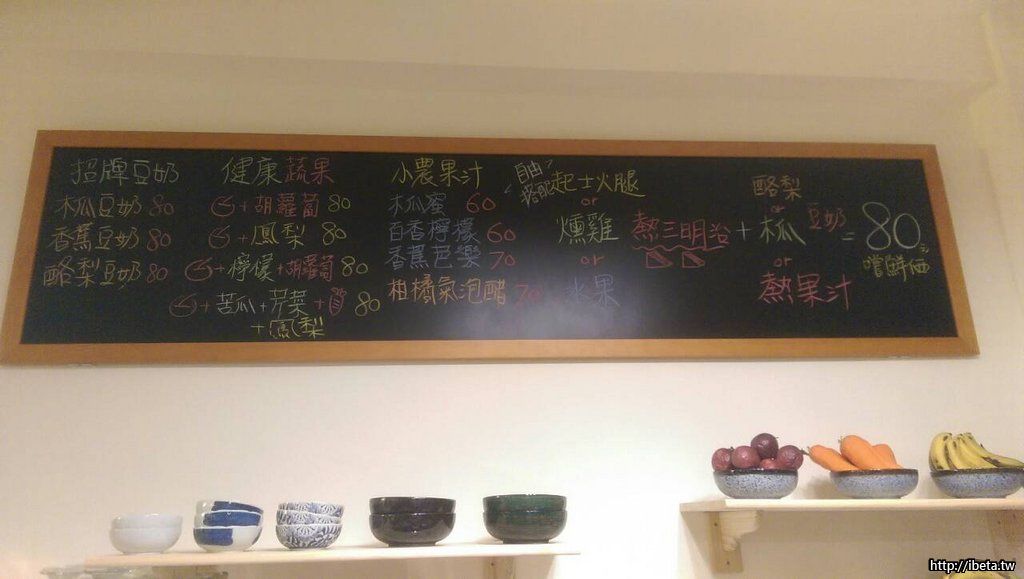 招牌豆奶
木瓜豆奶 80
香蕉豆奶 80
酪梨豆奶 80
健康蔬果
+胡蘿蔔 80
+鳳梨 80
+檸檬+胡蘿蔔 80
+苦瓜+芹菜+ 80
+鳳梨
小農果汁
木瓜蜜 60
百香檸檬 60
香蕉芭樂 70
柑橘氣泡醋 70
自由
搭配
起士火腿
or
燻雞
or
水果
熱三明治
+
酪梨
or
木瓜
豆奶
or
熱果汁
= 80元
嚐鮮価
http://ibeta.tw